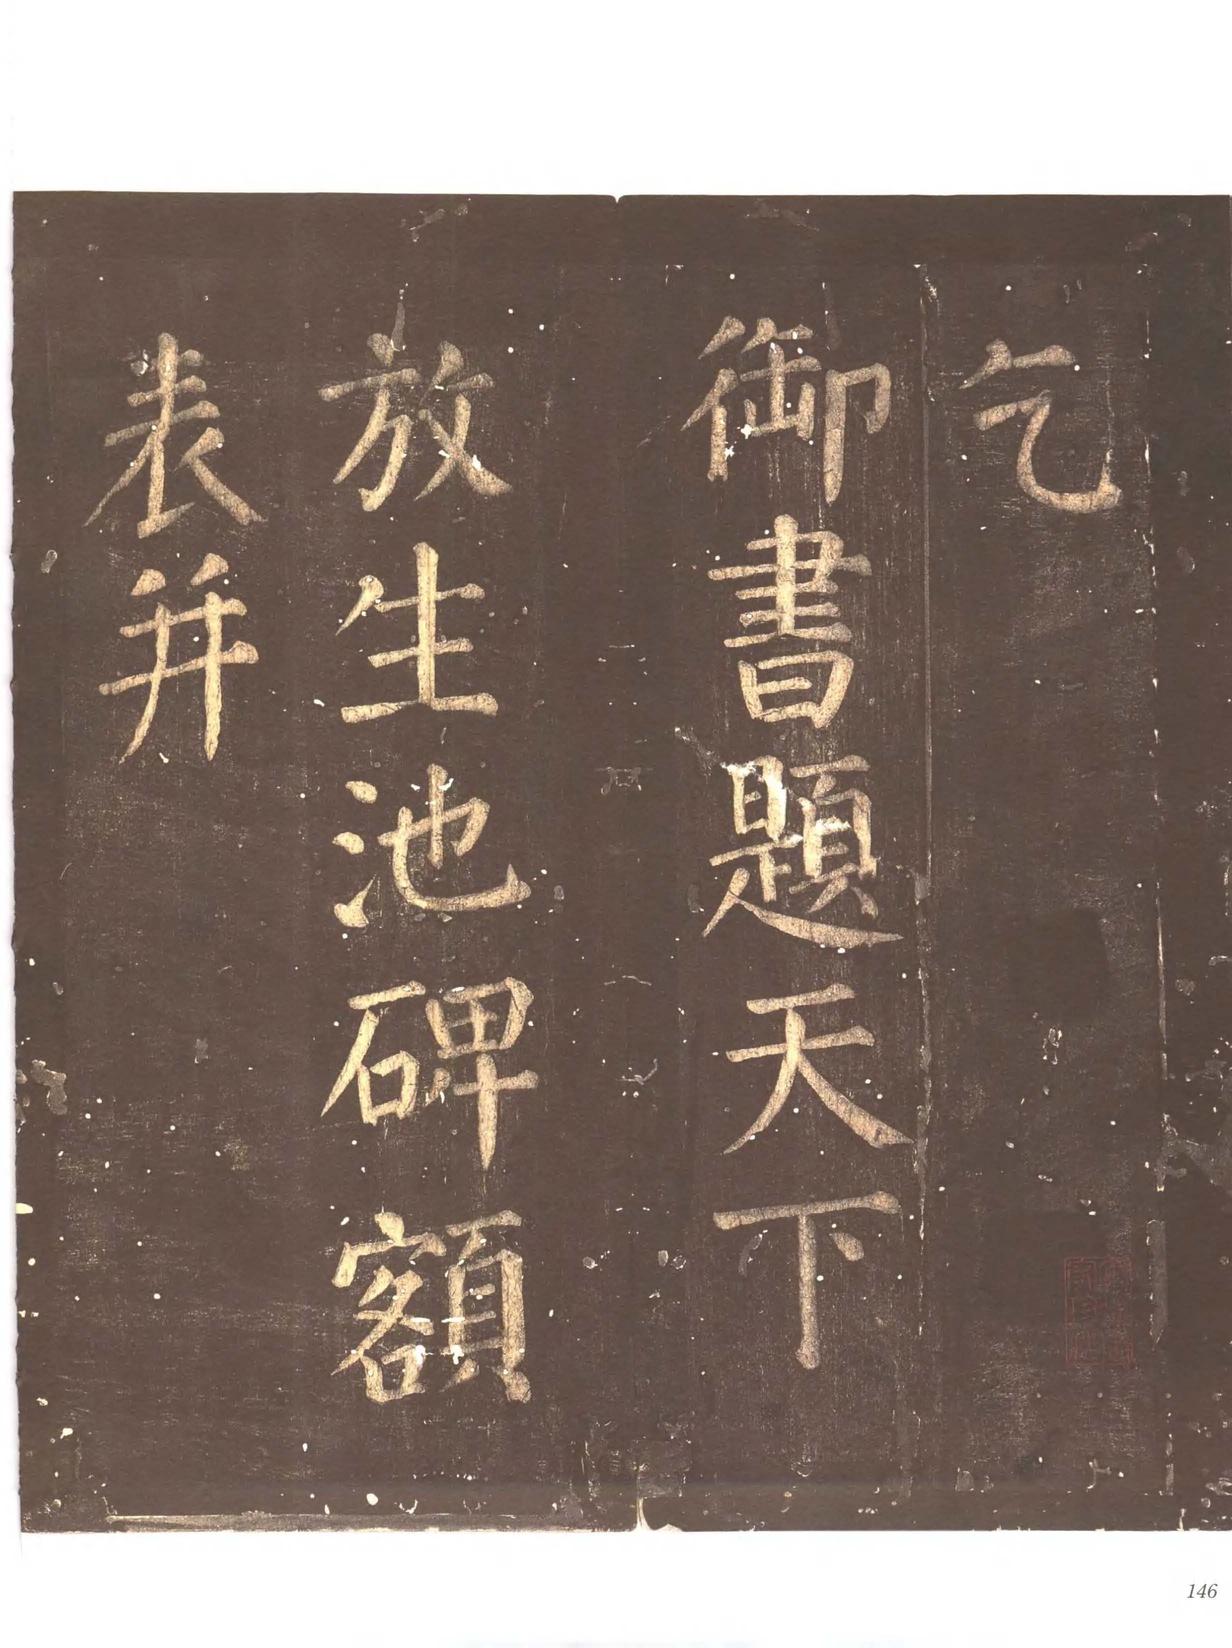 乞
御書題天下
放生池碑額
表并
146